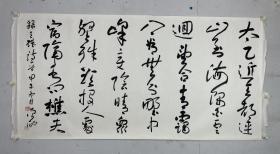 太乙近天都連
山到海隅白雲
迴望合青靄
入看無分野中
峰變陰晴眾
壑殊欲投人處
宿隔水問樵夫